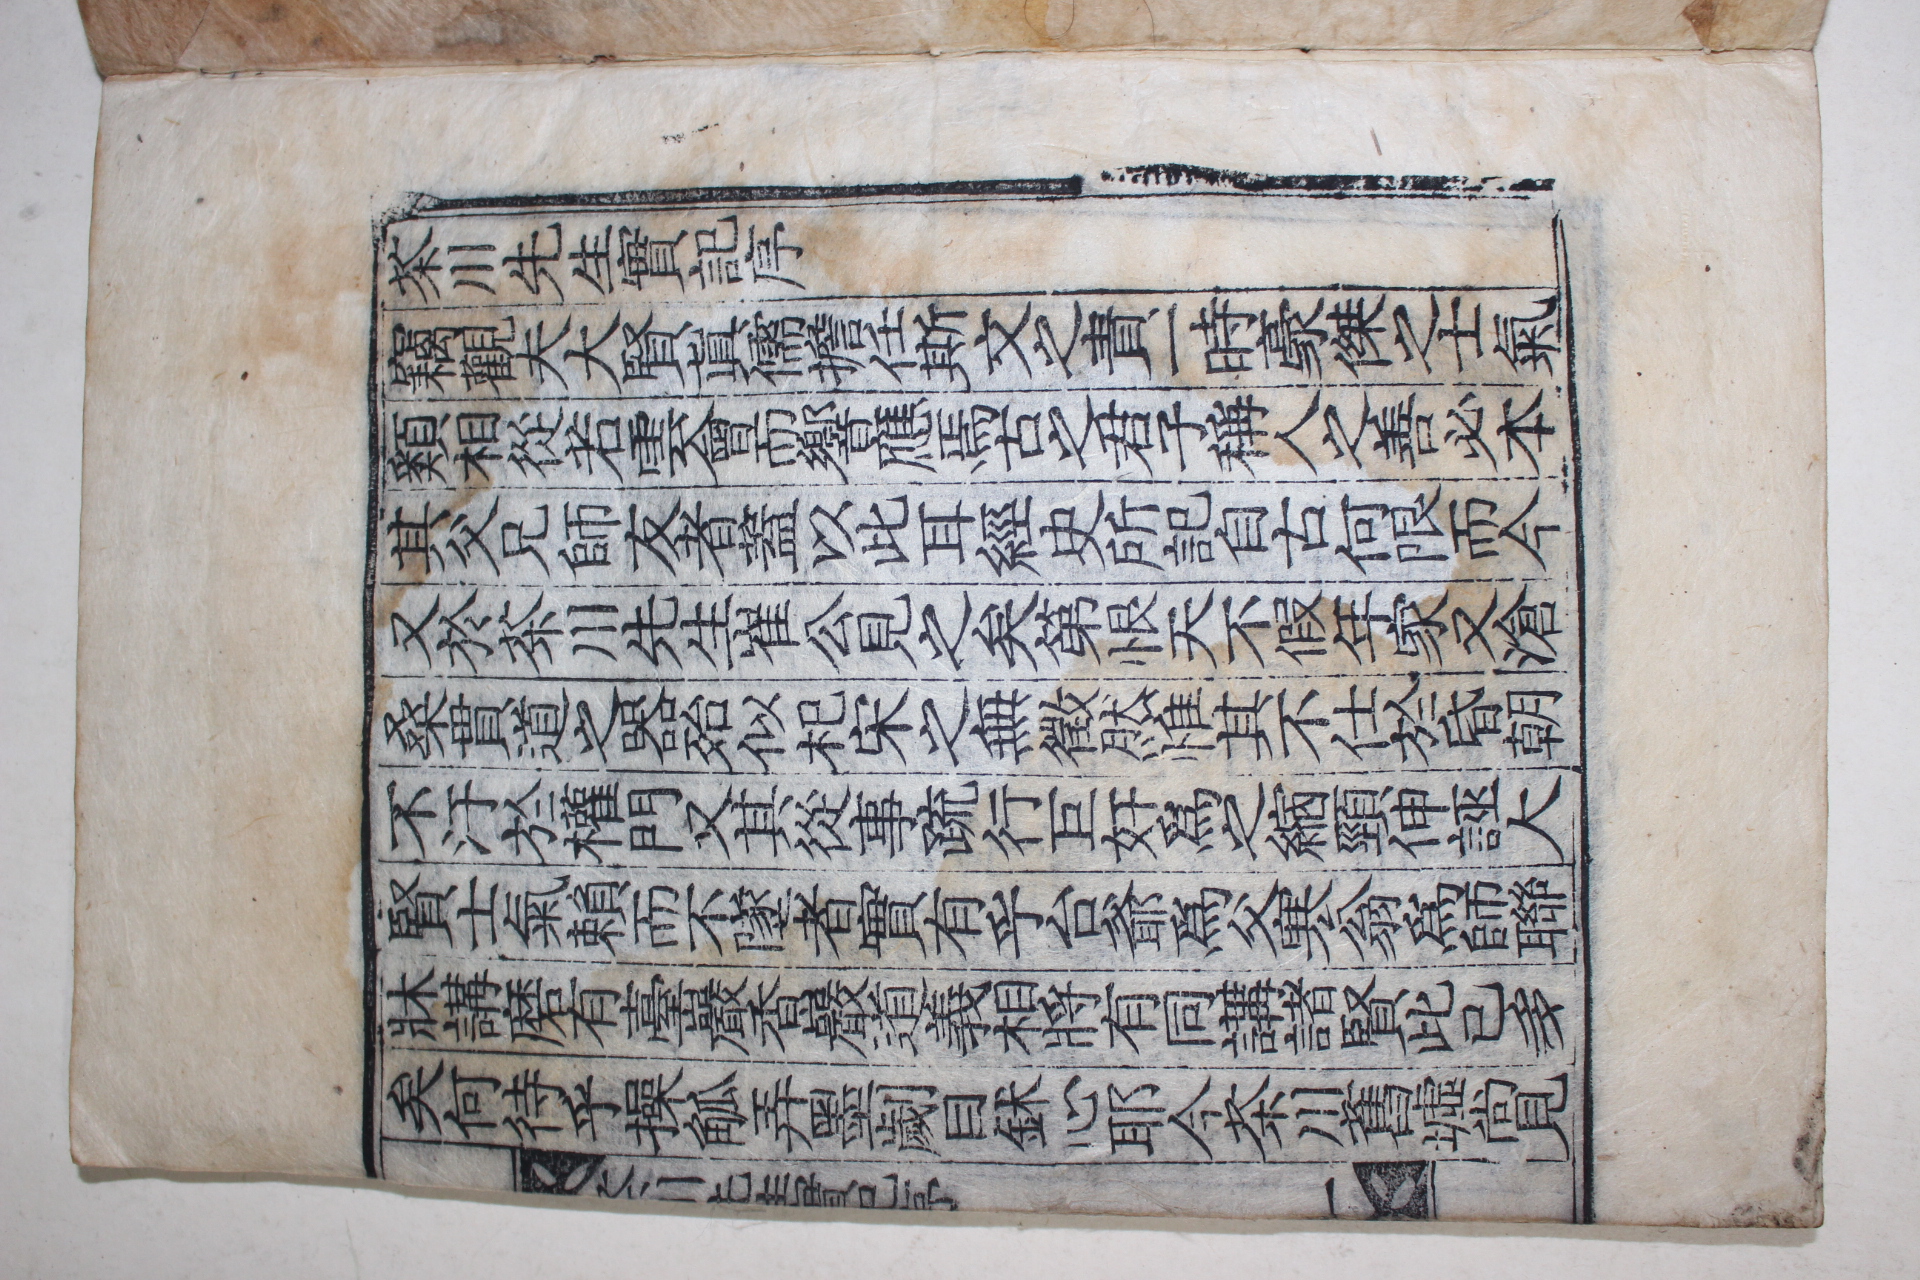 桼川先生實記序
竊觀夫大賢眞儒擔任斯文之責一時豪傑之士氣
類相從若雲會而響應焉古之君子稱人之善必本
其父兄師友者蓋以此耳經史所記自古何限而今
又於桼川先生崔公見之矣第恨天不假年家又滄
桑實道之器殆似杞宋之無徵然惟其不仕於昏朝
不汙於權門又其從事疏行巨奸爲之縮頸伸誣大
賢士氣賴而不墜者實有乎台爺爲父寒翁爲師聯
牀講磨有臺巖杏巖道義相將有同講諸賢此已幸
矣何待乎操觚弄墨劌目鉥心耶今桼川舊墟尚見
桼川先生實記序 一